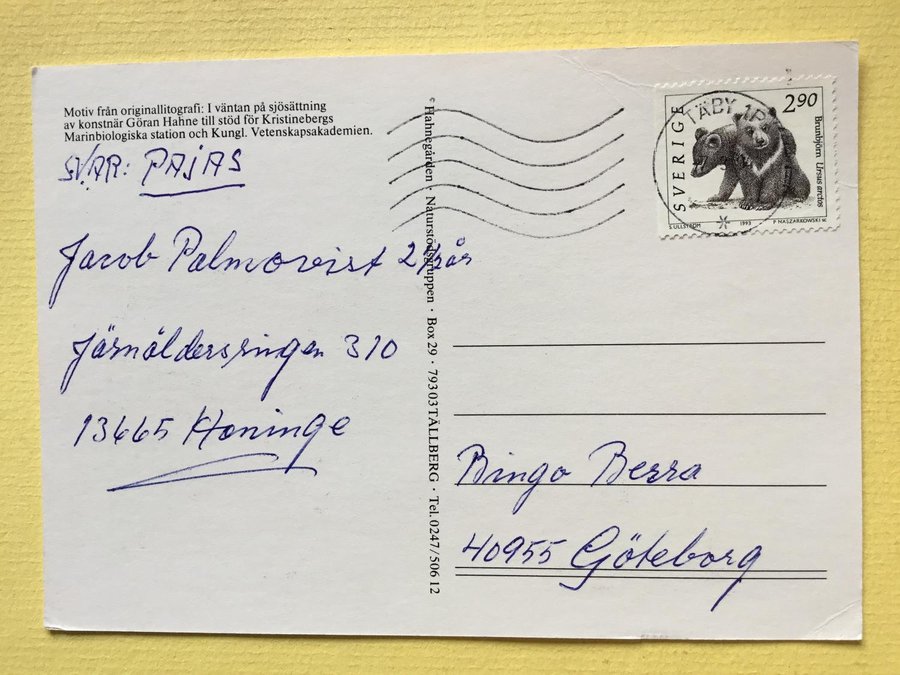 Motiv från originallitografi: I väntan på sjösättning
av konstnär Göran Hahne till stöd för Kristinebergs
Marinbiologiska station och Kungl. Vetenskapsakademien.
SVAR: PAJAS
Jacob Palmqvist 2 1/2 år
Järnåldersringen 310
13665 Haninge
© Hahnegården · Naturstödsgruppen · Box 29 · 79303 TÄLLBERG · Tel. 0247/506 12
TÄBY 1P
SVERIGE
2.90
Brunbjörn Ursus arctos
S.ULLSTRÖM 1993 P. NASZARKOWSKI SC
Bingo Berra
40955 Göteborg